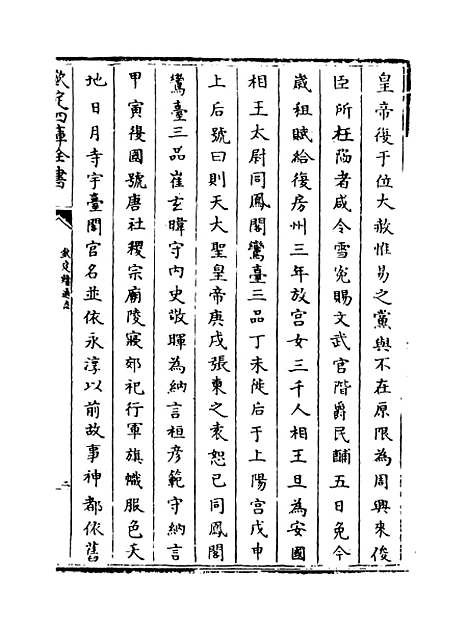 皇帝復于位大赦惟易之黨與不在原限為周興來俊
臣所枉陷者咸令雪免賜文武官階爵民酺五日免今
歲租賦給復房州三年放宫女三千人相王旦為安國
相王太尉同鳳閣鸞臺三品丁未徙后于上陽宫戊申
上后號曰則天大聖皇帝庚戌張柬之袁恕已同鳳閣
鸞臺三品崔玄暐守内史敬暉為納言桓彦範守納言
甲寅復國號唐社稷宗廟陵寢郊祀行軍旗幟服色天
地日月寺宇臺閣官名並依永淳以前故事神都依舊
欽定四庫全書
欽定續通志
二